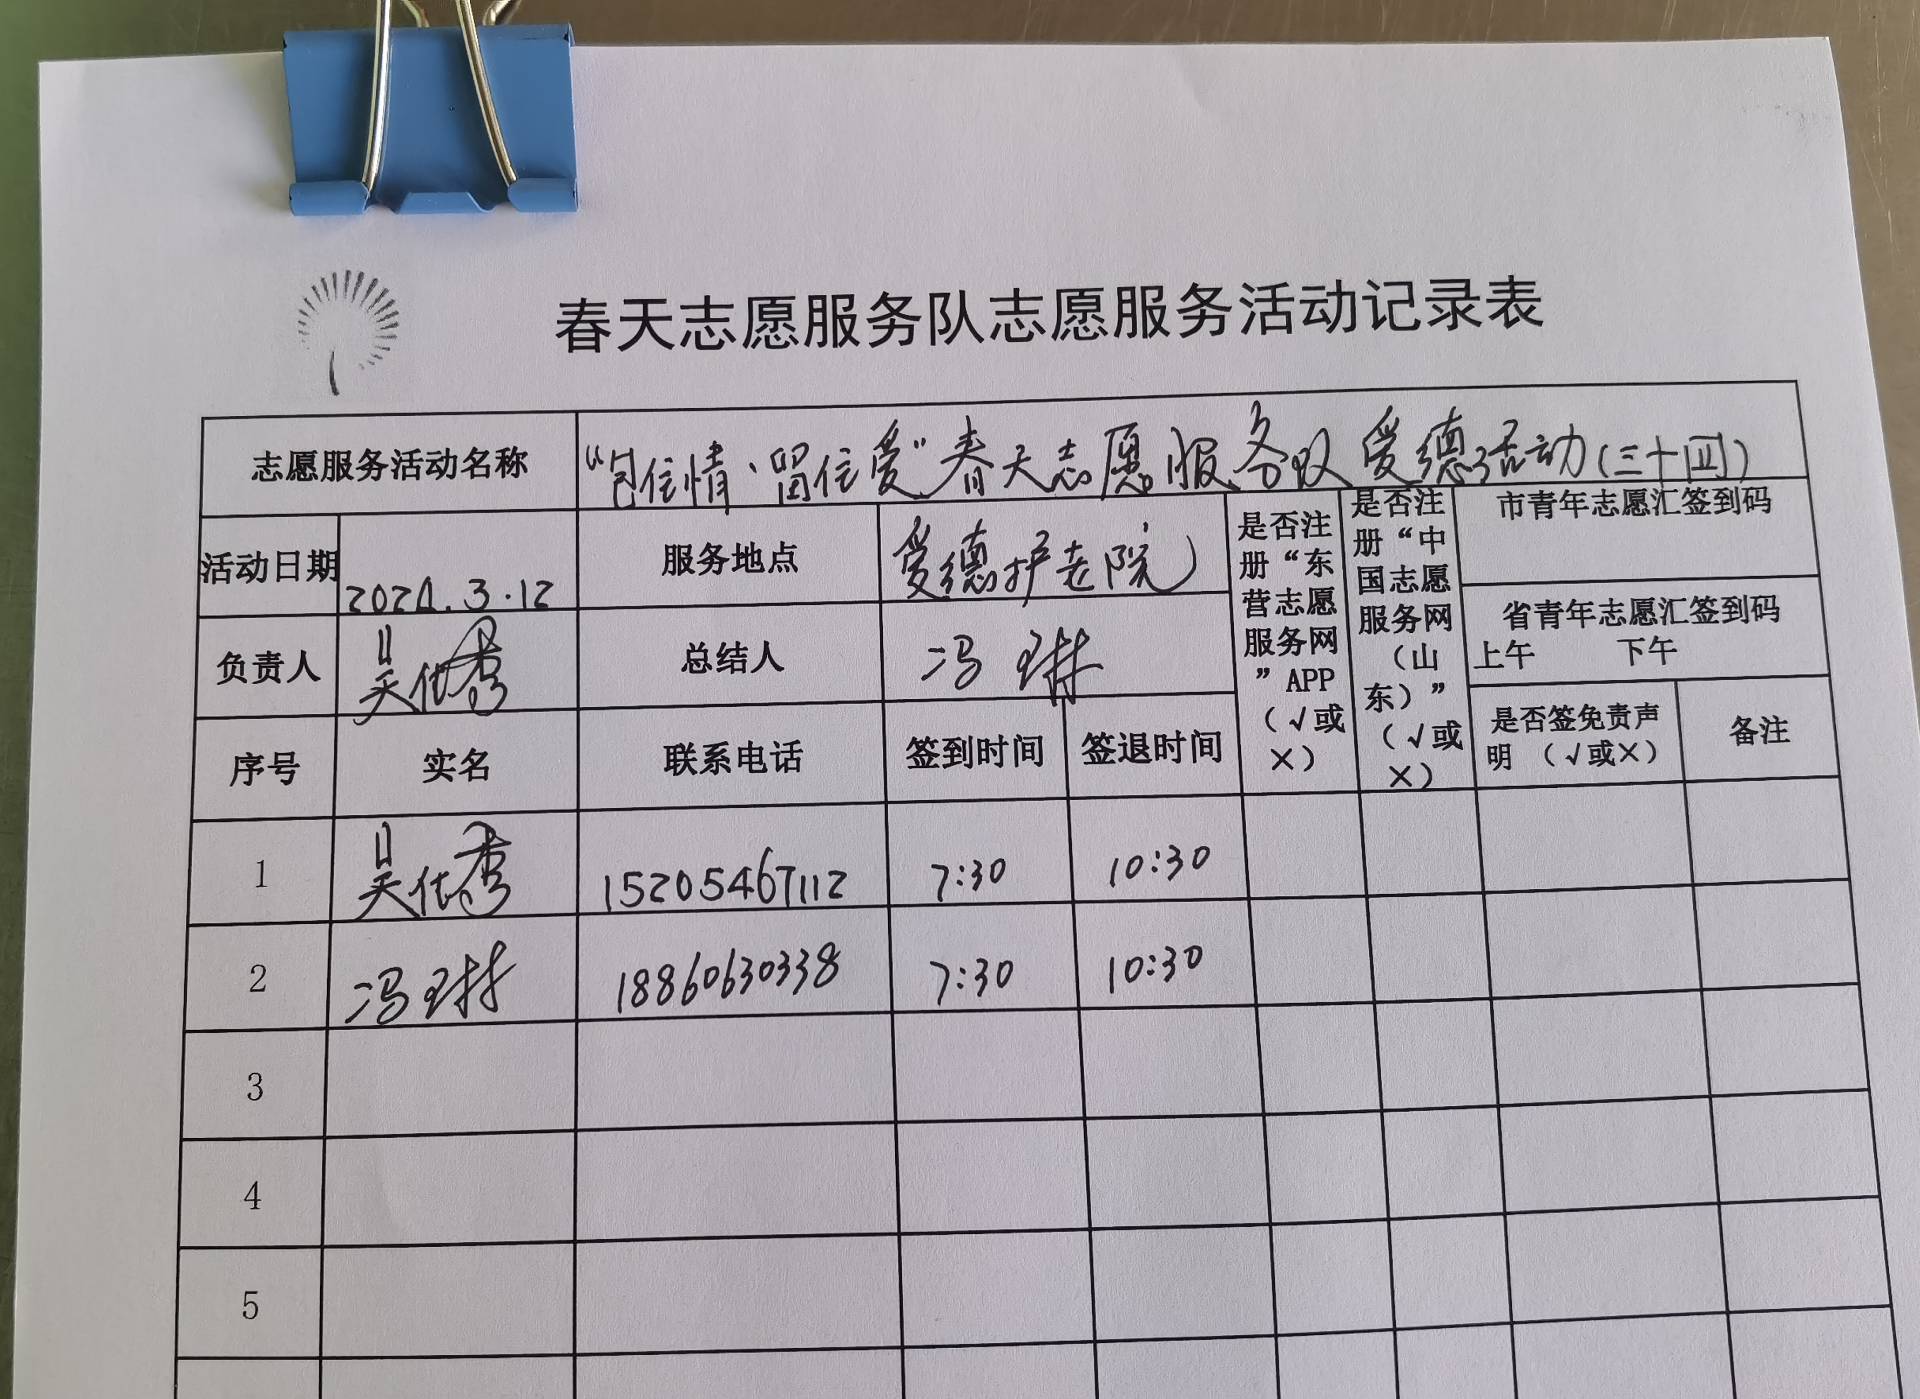 春天志愿服务队志愿服务活动记录表
志愿服务活动名称 “包住情、留住爱”春天志愿服务队爱德活动(三十四)
活动日期 2024.3.12 服务地点 爱德护老院
是否注册“东营志愿服务网”APP（√或×）
是否注册“中国志愿服务网（山东）”（√或×）
市青年志愿汇签到码
省青年志愿汇签到码
上午 下午
负责人 吴代秀 总结人 冯琳
序号 实名 联系电话 签到时间 签退时间 是否签免责声明（√或×） 备注
1 吴代秀 15205467112 7:30 10:30
2 冯琳 18860630338 7:30 10:30
3
4
5